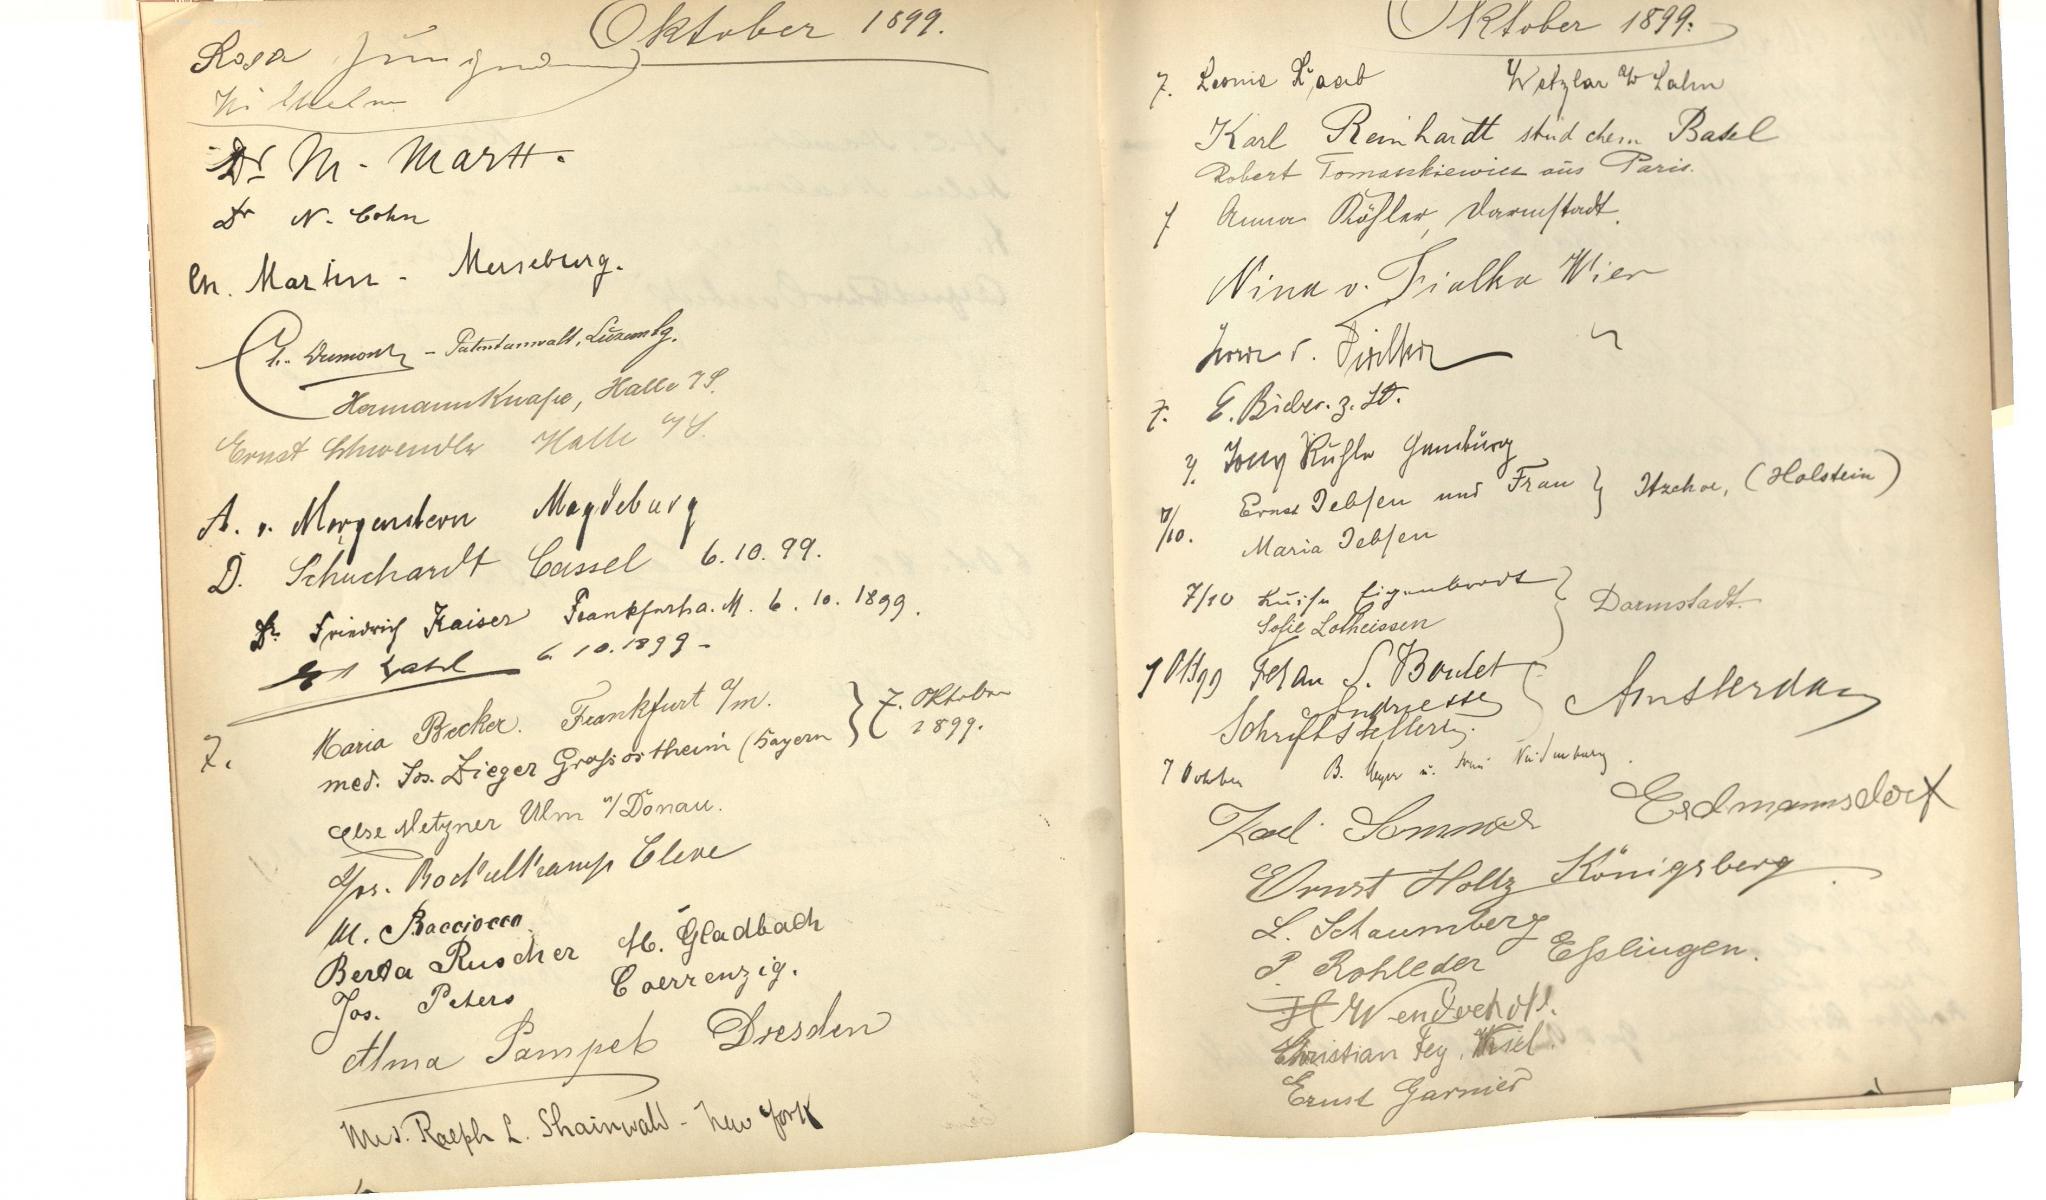 Oktober 1899.
Rosa
Wilhelm
Dr M. Martt.
Dr N. Cohn
Ch. Martin - Merseburg.
Ch. Dumont - Patentanwalt, Luxembg.
Hermann Knape, Halle a/S.
Ernst Schwendler Halle a/S.
A. v. Morgenstern Magdeburg
D. Schuchardt Cassel 6.10.99.
Dr. Friedrich Kaiser Frankfurt a. M. 6. 10. 1899.
6.10.1899-
7. Maria Becker. Frankfurt a/m.
med. Jos. Zieger Großostheim (Bayern
7. Oktober
1899.
Else Metzner Ulm a/Donau.
Jos. Cleve
M. Bacciocco
Berta Ruscher M. Gladbach
Jos. Peters Coerrenzig.
Alma Pampel Dresden
Mrs. Ralph L. Shainwald - New York
Oktober 1899.
7. Leonie Wetzlar a/Lahn
Karl Reinhardt stud chem Basel
Robert Tomaszkiewicz aus Paris.
7 Anna Röhler, Darmstadt.
Nina v. Fialka Wien
v. Fialka "
7. E. z. Zt.
7. Tony Kuhle Hamburg
7/10. Ernst Jebsen und Frau
Maria Jebsen
Itzehoe, (Holstein)
7/10 Luise Eigenbrodt
Sofie Lotheissen
Darmstadt.
7 Okt 99 S. Boudet
Andriesse
Schriftstellerin.
Amsterdam
7 October B. Meyer u. Frau
Karl Sommer Erdmannsdorf
Ernst Holtz Königsberg
L. Schaumberg
P. Rohleder Eßlingen.
H Wenderhold.
Christian Fey, Kiel.
Ernst Garnier